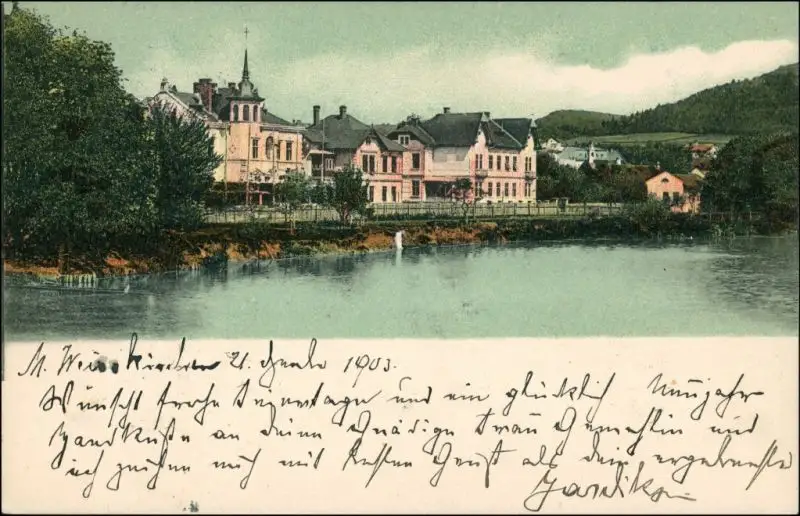 M. Weisskirchen 21. 1903.
Wünscht frohe Feiertage und ein glücklich Neujahr
Handküsse an deine Gnädige Frau Gemahlin und
ich zeichne mich mit besten Grüst als dein ergebenster